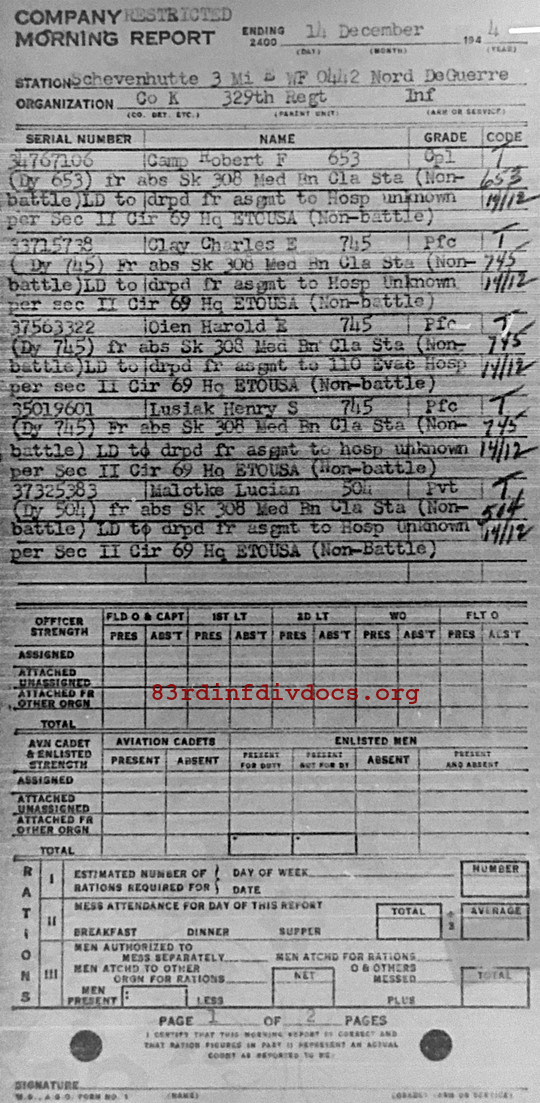 COMPANY RESTRICTED
MORNING REPORT ENDING 2400 14 December 194 4
(DAY) (MONTH) (YEAR)
STATION Schevenhutte 3 Mi E WF 0442 Nord DeGuerre
ORGANIZATION Co K 329th Regt Inf
(CO. DET. ETC.) (PARENT UNIT) (ARM OR SERVICE)
SERIAL NUMBER NAME GRADE CODE
34767106 Camp Robert F 653 Cpl T
(Dy 653) fr abs Sk 308 Med Bn Cla Sta (Non- 653
battle)LD to drpd fr asgmt to Hosp unknown 14/12
per Sec II Cir 69 Hq ETOUSA (Non-battle)
33715738 Clay Charles E 745 Pfc T
( Dy 745) Fr abs Sk 308 Med Bn Cla Sta (Non- 745
battle)LD to drpd fr asgmt to Hosp Unknown 14/12
per sec II Cir 69 Hq ETOUSA (Non-battle)
37563322 Oien Harold E 745 Pfc T
(Dy 745) fr abs Sk 308 Med Bn Cla Sta (Non- 745
battle)LD to drpd fr asgmt to 110 Evac Hosp 14/12
per sec II Cir 69 Hq ETOUSA (Non-battle)
35019601 Lusiak Henry S 745 Pfc T
(Dy 745) Fr abs Sk 308 Med Bn Cla Sta (Non- 745
battle) LD to drpd fr asgmt to hosp unknown 14/12
per Sec II Cir 69 Hq ETOUSA (Non-battle)
37325383 Malotke Lucian 504 Pvt T
(Dy 504) fr abs Sk 308 Med Bn Cla Sta (Non- 504
battle) LD to drpd fr asgmt to Hosp Unknown 14/12
per Sec II Cir 69 Hq ETOUSA (Non-Battle)
OFFICER STRENGTH FLD O & CAPT 1ST LT 2D LT WO FLT O
PRES ABS'T PRES ABS'T PRES ABS'T PRES ABS'T PRES ABS'T
ASSIGNED
ATTACHED UNASSIGNED
ATTACHED FR OTHER ORGN
83rdinfdivdocs.org
TOTAL
AVN CADET & ENLISTED STRENGTH AVIATION CADETS ENLISTED MEN
PRESENT ABSENT PRESENT FOR DUTY PRESENT NOT FOR DY ABSENT PRESENT AND ABSENT
ASSIGNED
ATTACHED UNASSIGNED
ATTACHED FR OTHER ORGN
TOTAL
RATIONS
I ESTIMATED NUMBER OF RATIONS REQUIRED FOR DAY OF WEEK DATE NUMBER
II MESS ATTENDANCE FOR DAY OF THIS REPORT TOTAL ÷ 3 AVERAGE
BREAKFAST DINNER SUPPER
III MEN AUTHORIZED TO MESS SEPARATELY MEN ATCHD FOR RATIONS
MEN ATCHD TO OTHER ORGN FOR RATIONS NET O & OTHERS MESSED TOTAL
MEN PRESENT LESS PLUS
PAGE 1 OF 2 PAGES
I CERTIFY THAT THIS MORNING REPORT IS CORRECT AND
THAT RATION FIGURES IN PART II REPRESENT AN ACTUAL
COUNT AS REPORTED TO ME:
SIGNATURE
W.D., A.G.O. FORM NO. 1 (NAME) (GRADE) (ARM OR SERVICE)